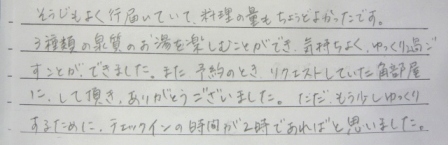 そうじもよく行届いていて、料理の量もちょうどよかったです。
3種類の泉質のお湯を楽しむことができ、気持ちよく、ゆっくり過ご
すことが、できました。また、予約のとき、リクエストしていた角部屋
に、して頂き、ありがとうございました。ただ、もう少しゆっくり
するために、チェックインの時間が2時であればと思いました。